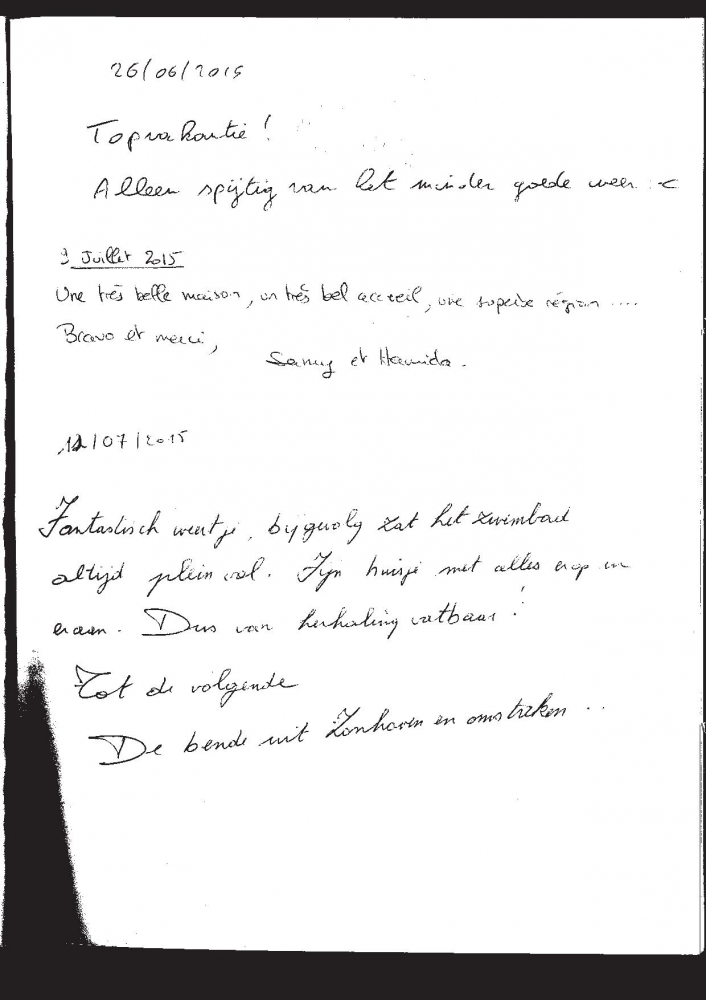 26/06/2015
Topvakantie!
Alleen spijtig van het minder goede weer :<
9 Juillet 2015
Une très belle maison, un très bel accueil, une superbe région ....
Bravo et merci,
Samy et Hamida.
12/07/2015
Fantastisch weertje, bijgevolg zat het zwembad
altijd plein vol. Fijn huisje met alles erop en
eraan. Dus van herhaling vatbaar!
Tot de volgende
De bende uit Zonhoven en omstreken ..